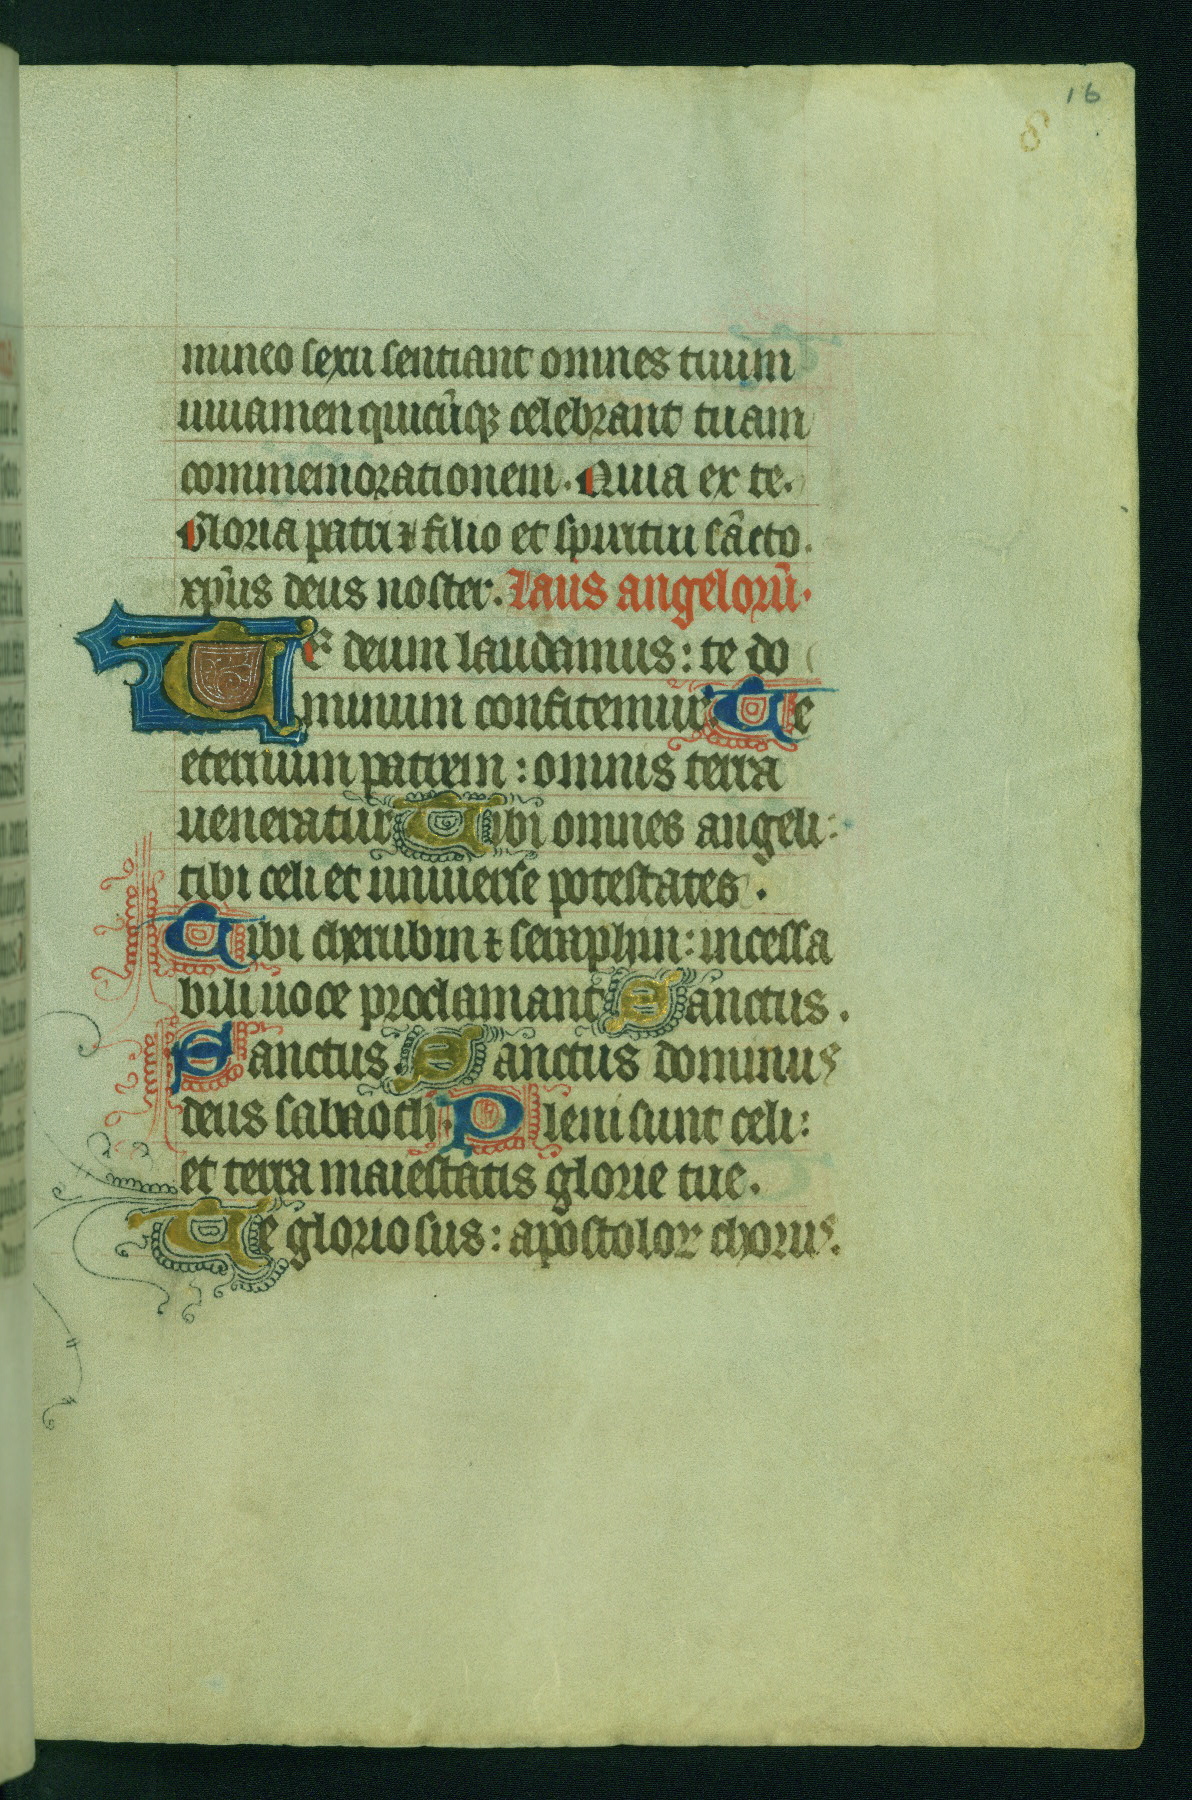 16
8
mineo sexu sentiant omnes tuum
iuuamen quicūq; celebrant tuam
commemorationem. Quia ex te.
Gloria patri ⁊ filio et spiritui sācto.
xp̄us deus noster. Laus angelorū.
Te deum laudamus: te do
minum confitemur. Te
eternum patrem: omnis terra
ueneratur. Tibi omnes angeli:
tibi celi et uniuerse potestates.
Tibi cherubin ⁊ seraphin: incessa
bili uoce proclamant. Sanctus.
Sanctus. Sanctus dominus
deus sabaoth. Pleni sunt celi:
et terra maiestatis glorie tue.
Te gloriosus: apostoloꝝ chorus.